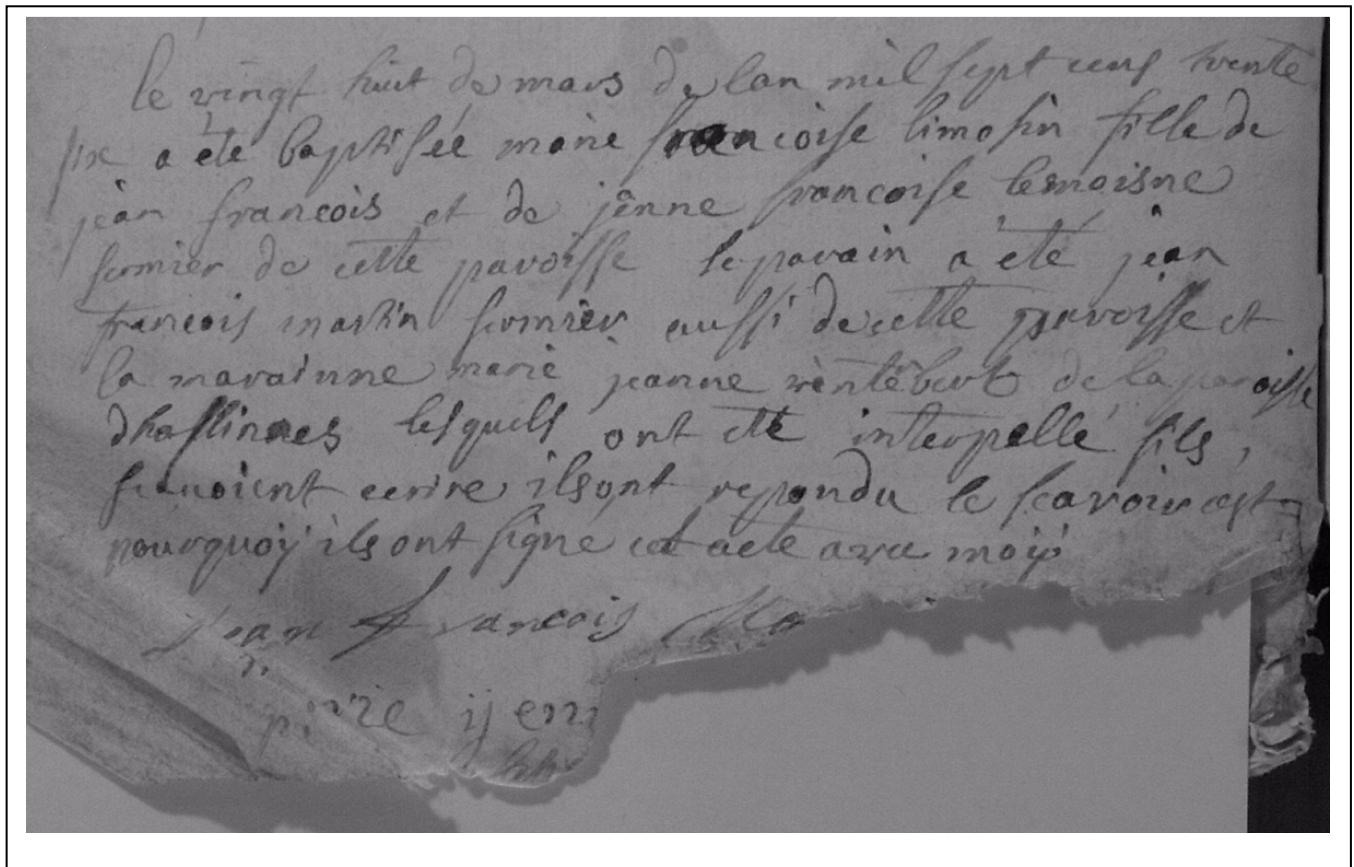 le vingt huit de mars de lan mil sept cens trente
six a été baptisée marie francoise limosin fille de
jéan francois et de jênne francoise lemoisne
fermier de cette paroisse le parain a été jéan
francois martin fermier aussi de cette paroisse et
la marainne marie jeanne de la paroisse
dhaslinnes lesquels ont été interpellé sils
scauoient ecrire ils ont repondu le scavoir cest
pourquoÿ ils ont signé cet acte avec moÿ
jean francois Ma
pierre